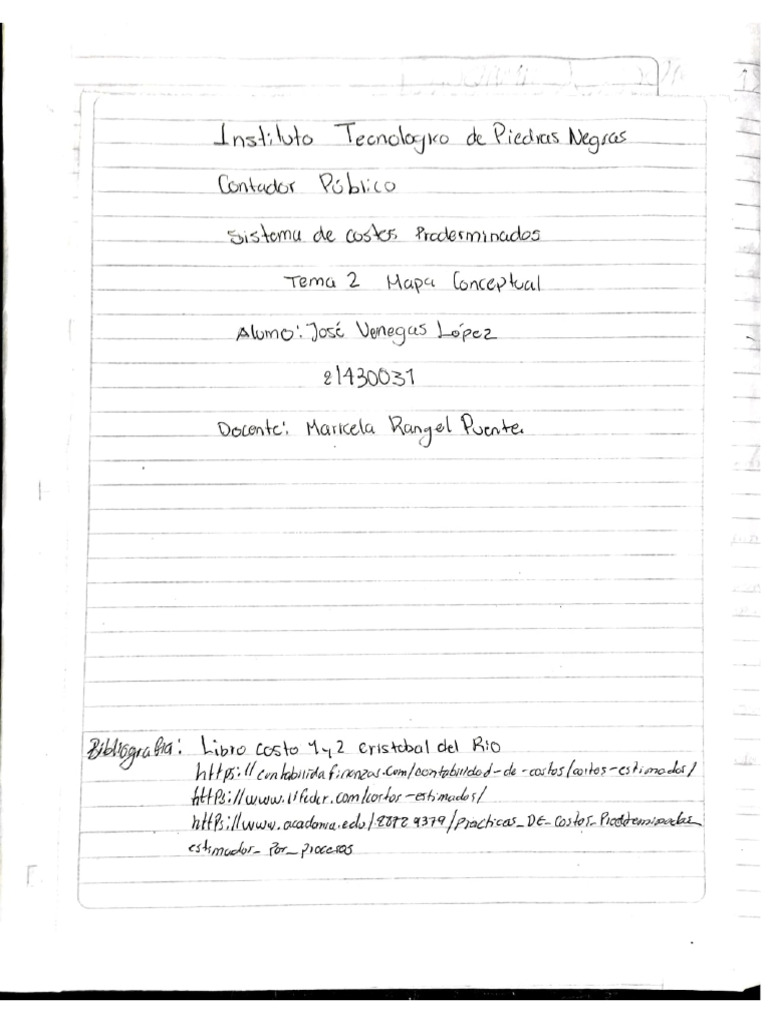 Instituto Tecnologico de Piedras Negras
Contador Público
Sistema de costos Prederminados
Tema 2 Mapa Conceptual
Alumo: José Venegas López
21430031
Docente: Maricela Rangel Puente.
Bibliografia: Libro costo 1 y 2 cristobal del Rio
https://contabilidafinanzas.com/contabilidad-de-costos/costos-estimados/
https://www.
.com/costos-estimados/
https://www.academia.edu/28729379/Practicas_DE_Costos_Predeterminados_
estimador_Por_procesos